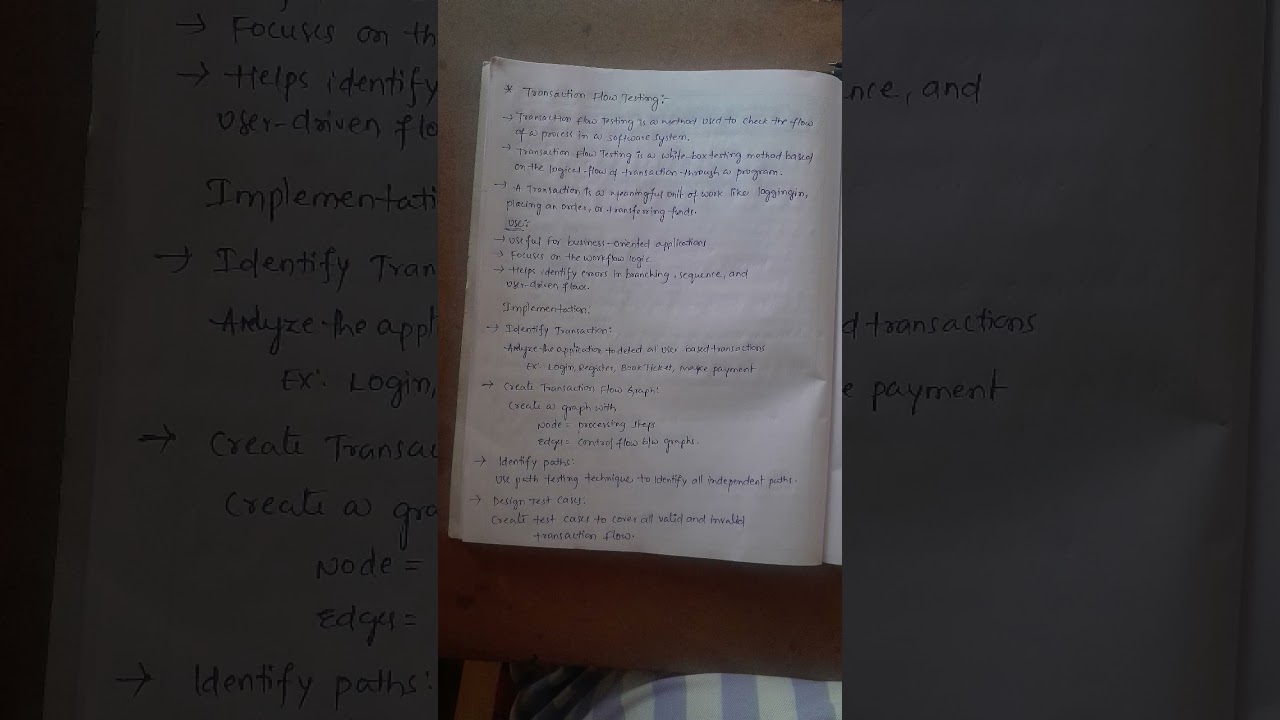 * Transaction Flow Testing:-
→ Transaction flow Testing is a method used to check the flow
of a process in a software system.
→ Transaction Flow Testing is a white-box testing method based
on the logical flow of transaction through a program.
→ A Transaction is a meaningful unit of work like loggingin,
placing an order, or transferring funds.
Use:
→ Useful for business-oriented applications
→ Focuses on the workflow logic
→ Helps identify errors in branching, sequence, and
User-driven flows.
Implementation:
→ Identify Transaction:
Analyze the application to detect all user based transactions
Ex: Login, Register, Book Ticket, Make payment
→ Create Transaction Flow Graph:
Create a graph with
Node = processing steps
Edges = Control flow b/w graphs.
→ Identify paths:
Use path testing technique to identify all independent paths.
→ Design Test Cases:
Create test cases to cover all valid and invalid
transaction flow.
→ Focuses on th
→ Helps identify
User-driven flo
Implementati
→ Identify Tran
Analyze the appl
Ex: Login,
→ Create Transac
Create a gra
Node =
Edges =
→ Identify paths:
nce, and
d transactions
e payment